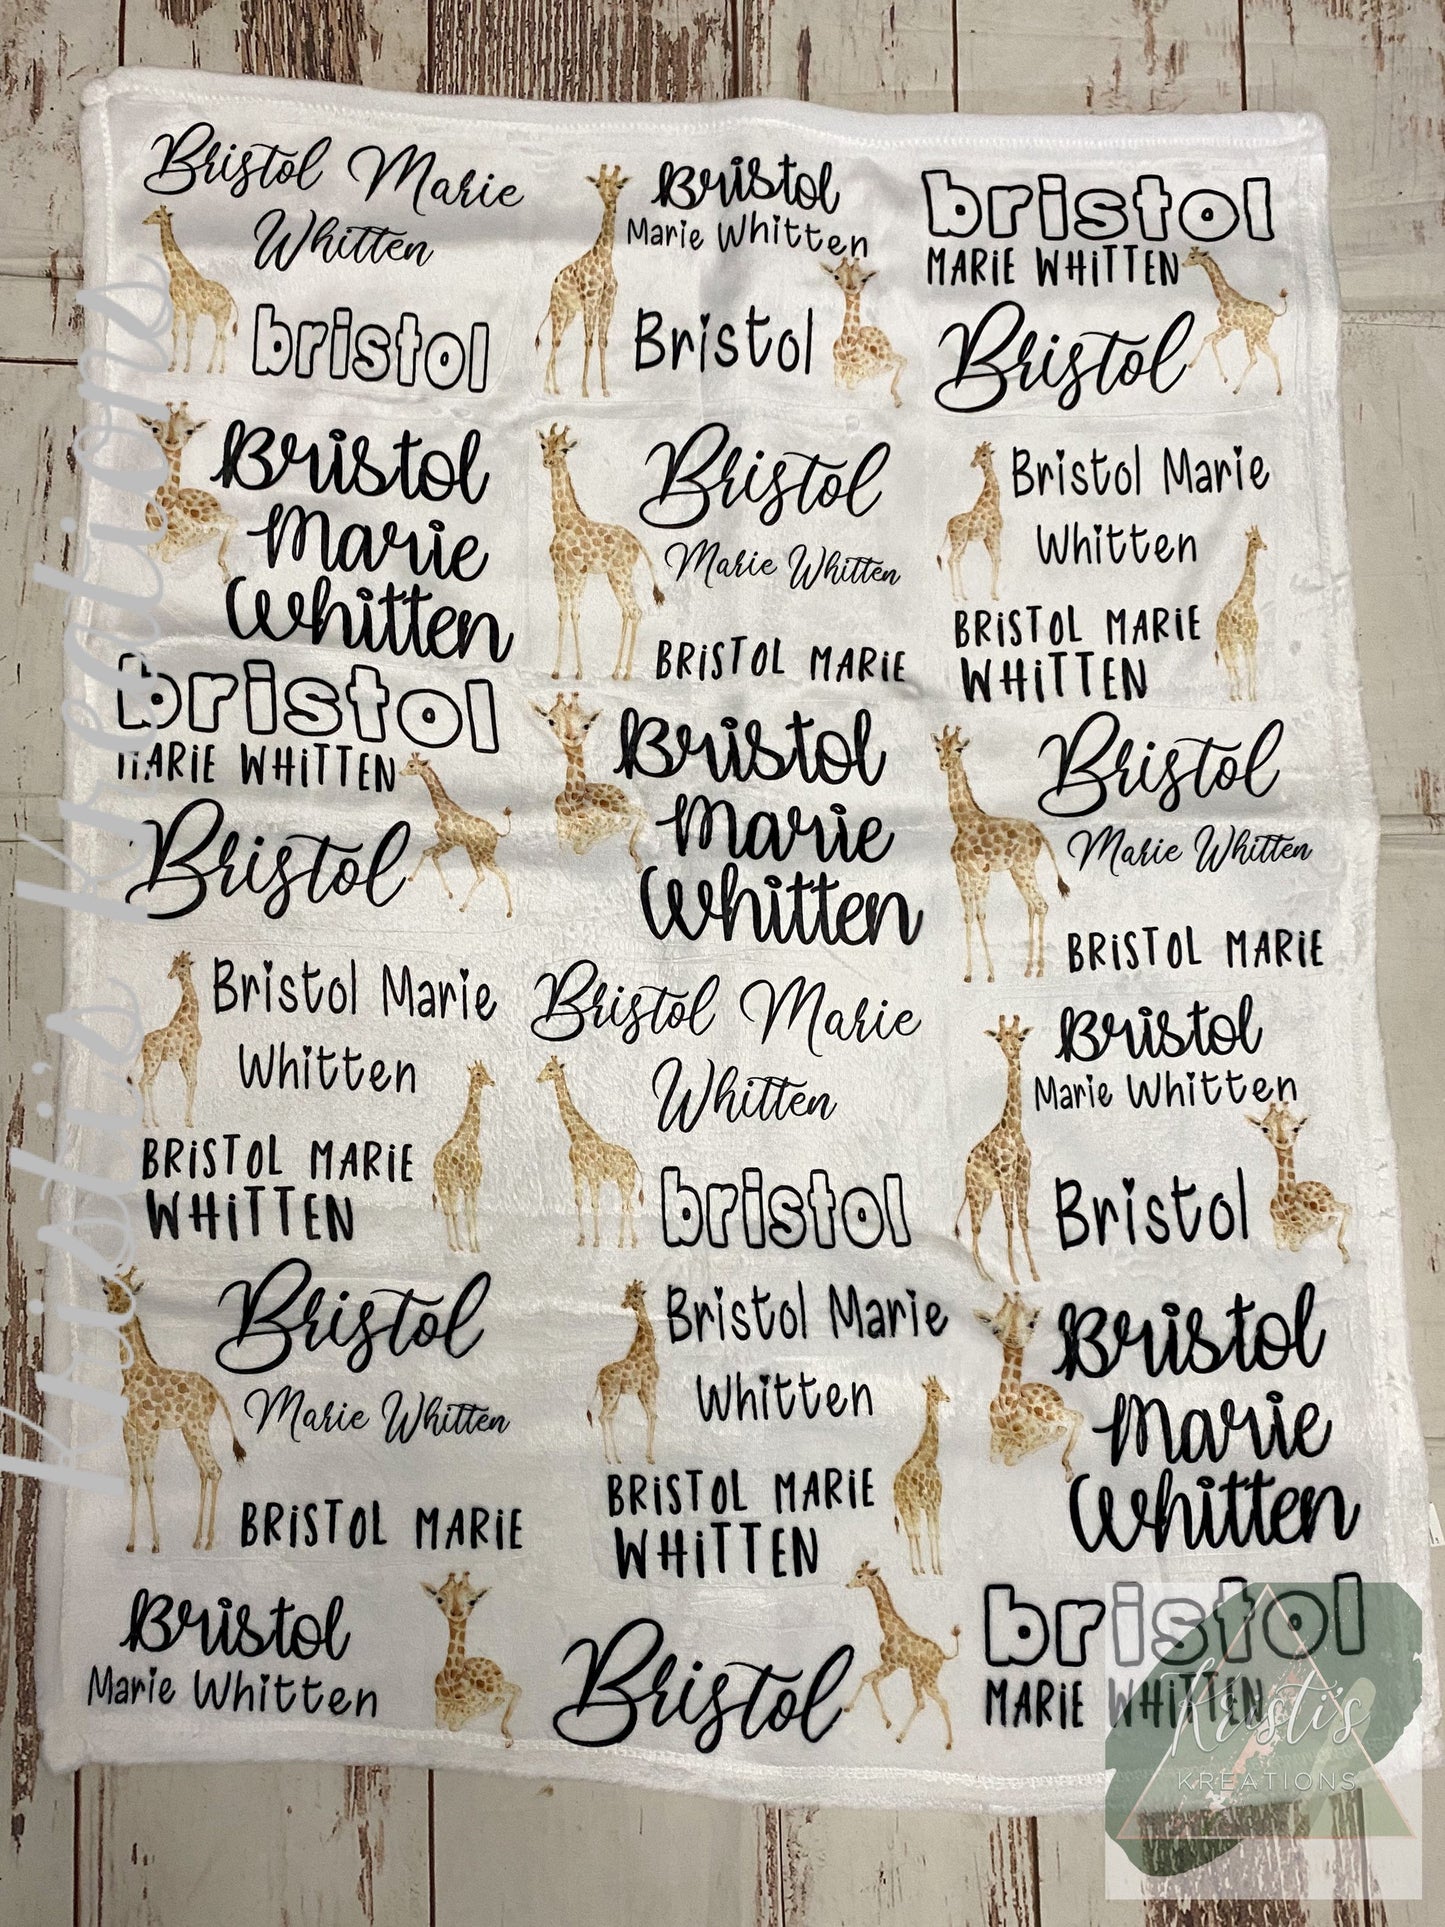 Bristol Marie
Whitten
bristol
Bristol
Marie Whitten
Bristol
bristol
MARIE WHITTEN
Bristol
Bristol
Marie
Whitten
Bristol
Marie Whitten
BRISTOL MARIE
Bristol Marie
Whitten
BRISTOL MARIE
WHITTEN
bristol
MARIE WHITTEN
Bristol
Bristol
Marie
Whitten
Bristol
Marie Whitten
BRISTOL MARIE
Bristol Marie
Whitten
BRISTOL MARIE
WHITTEN
Bristol Marie
Whitten
bristol
Bristol
Marie Whitten
Bristol
Bristol
Marie Whitten
BRISTOL MARIE
Bristol Marie
Whitten
BRISTOL MARIE
WHITTEN
Bristol
Marie
Whitten
Bristol
Marie Whitten
Bristol
bristol
MARIE WHITTEN
kristis kreations
Kristi's
KREATIONS